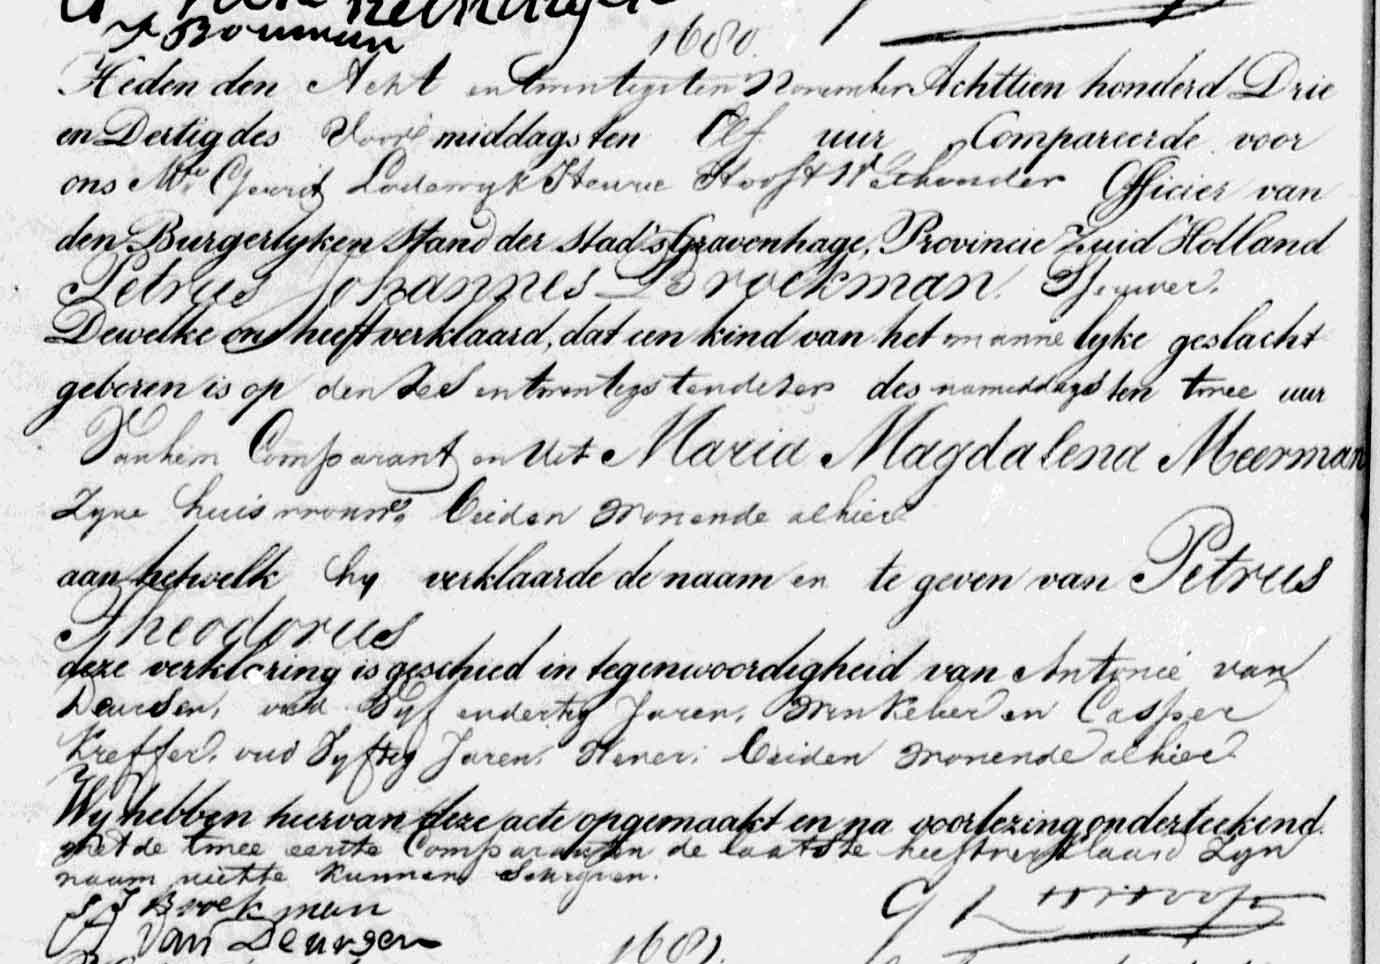 Bouman
1680.
Heden den Acht en twintigsten November Achttien honderd Drie
en Dertig des Voor middags ten Elf uur Compareerde voor
ons Mr. Gerrit Lodewyk Henrie Hooft Wethouder Officier van
den Burgerlyken Stand der Stad 's Gravenhage, Provincie Zuid Holland
Petrus Johannes Broekman.
Dewelke ons heeft verklaard, dat een kind van het manne lyke geslacht
geboren is op den Zes en twintigsten dezer des namiddags ten twee uur
Van hem Comparant en uit Maria Magdalena Meerman
Zyne huisvrouw, beiden wonende alhier
aan hetwelk hy verklaarde de naam en te geven van Petrus
Theodorus
deze verklaring is geschied in tegenwoordigheid van Antonie van
Deursen, oud Vyf en dertig Jaren, Winkelier en Casper
Kreffer, oud Vyftig Jaren, beiden wonende alhier
Wy hebben hiervan deze acte opgemaakt en na voorlezing onderteekend.
met de twee eerste Comparanten de laatste heeft verklaard Zyn
naam niet te kunnen Schryven.
P J Broekman
G L H Hooft
A Van Deursen
1681.